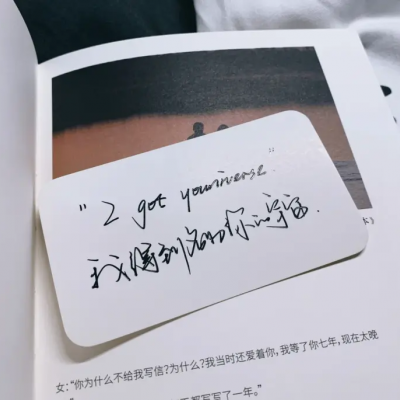 "I got youniverse"
我得到名为你的宇宙.
女:“你为什么不给我写信?为什么?我当时还爱着你,我等了你七年,现在太晚
写了一年。”